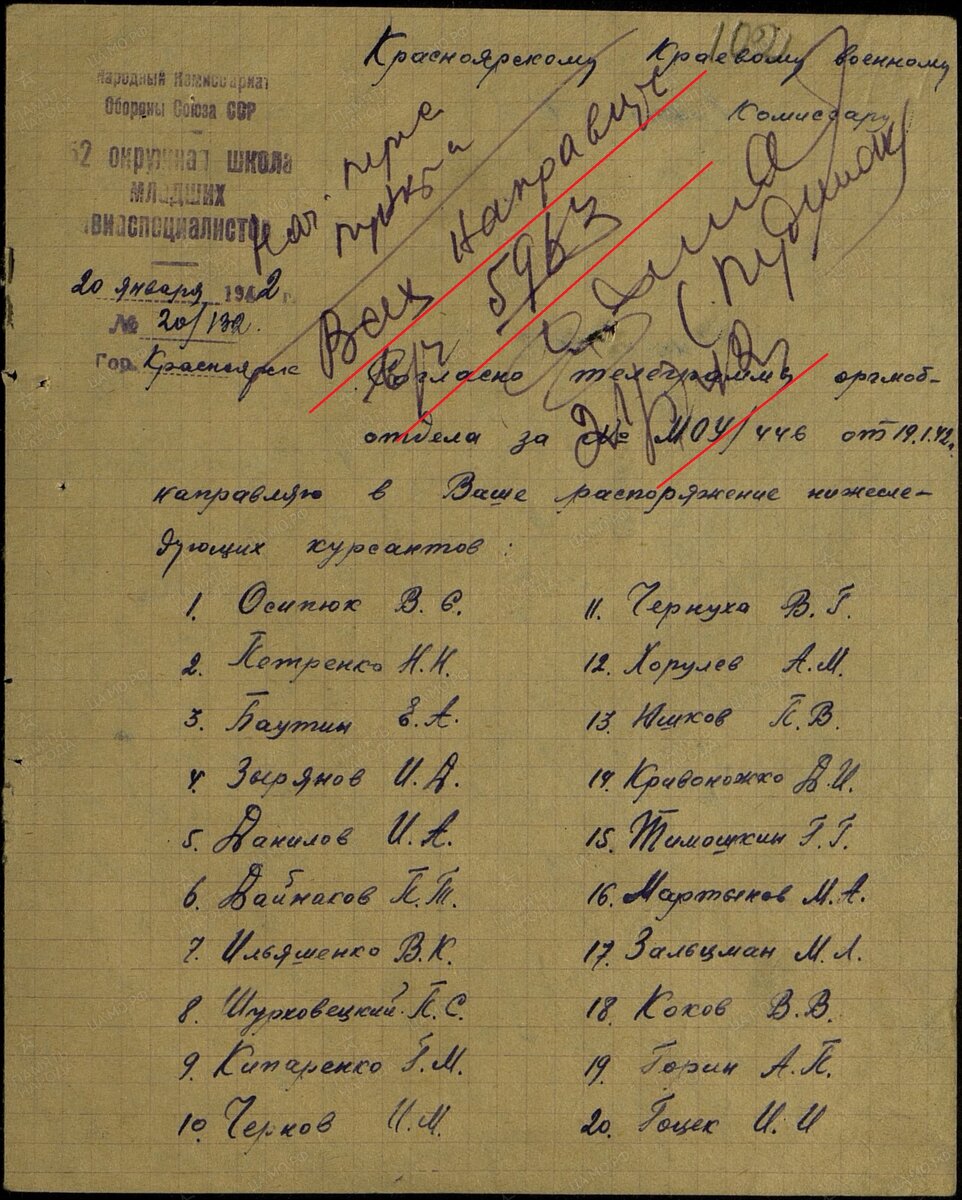 102
Красноярскому Краевому военному
Комиссару
Народный Комиссариат
Обороны Союза ССР
52 окружная школа
младших
авиаспециалистов
20 января 1942 г.
№ 20/132.
Гор. Красноярск
Всех направить
Согласно телеграммы оргмоб-
отдела за № МОУ/446 от 19.1.42г.
направляю в Ваше распоряжение нижесле-
дующих курсантов:
1. Осипюк В. С.
2. Петренко Н.Н.
3. Баутин Е.А.
4. Зырянов И.Д.
5. Данилов И.А.
6. Дайнаков П.Т.
7. Ильяшенко В.К.
8. Шурховецкий П.С.
9. Кипаренко Г.М.
10. Чернов И.М.
11. Чернуха В.Г.
12. Хорулев А.М.
13. Юшков П.В.
14. Кривоножко Д.И.
15. Тимошкин Г.Г.
16. Мартынов М.А.
17. Зальцман М.Л.
18. Коков В.В.
19. Горин А.П.
20. Гоцек И.И